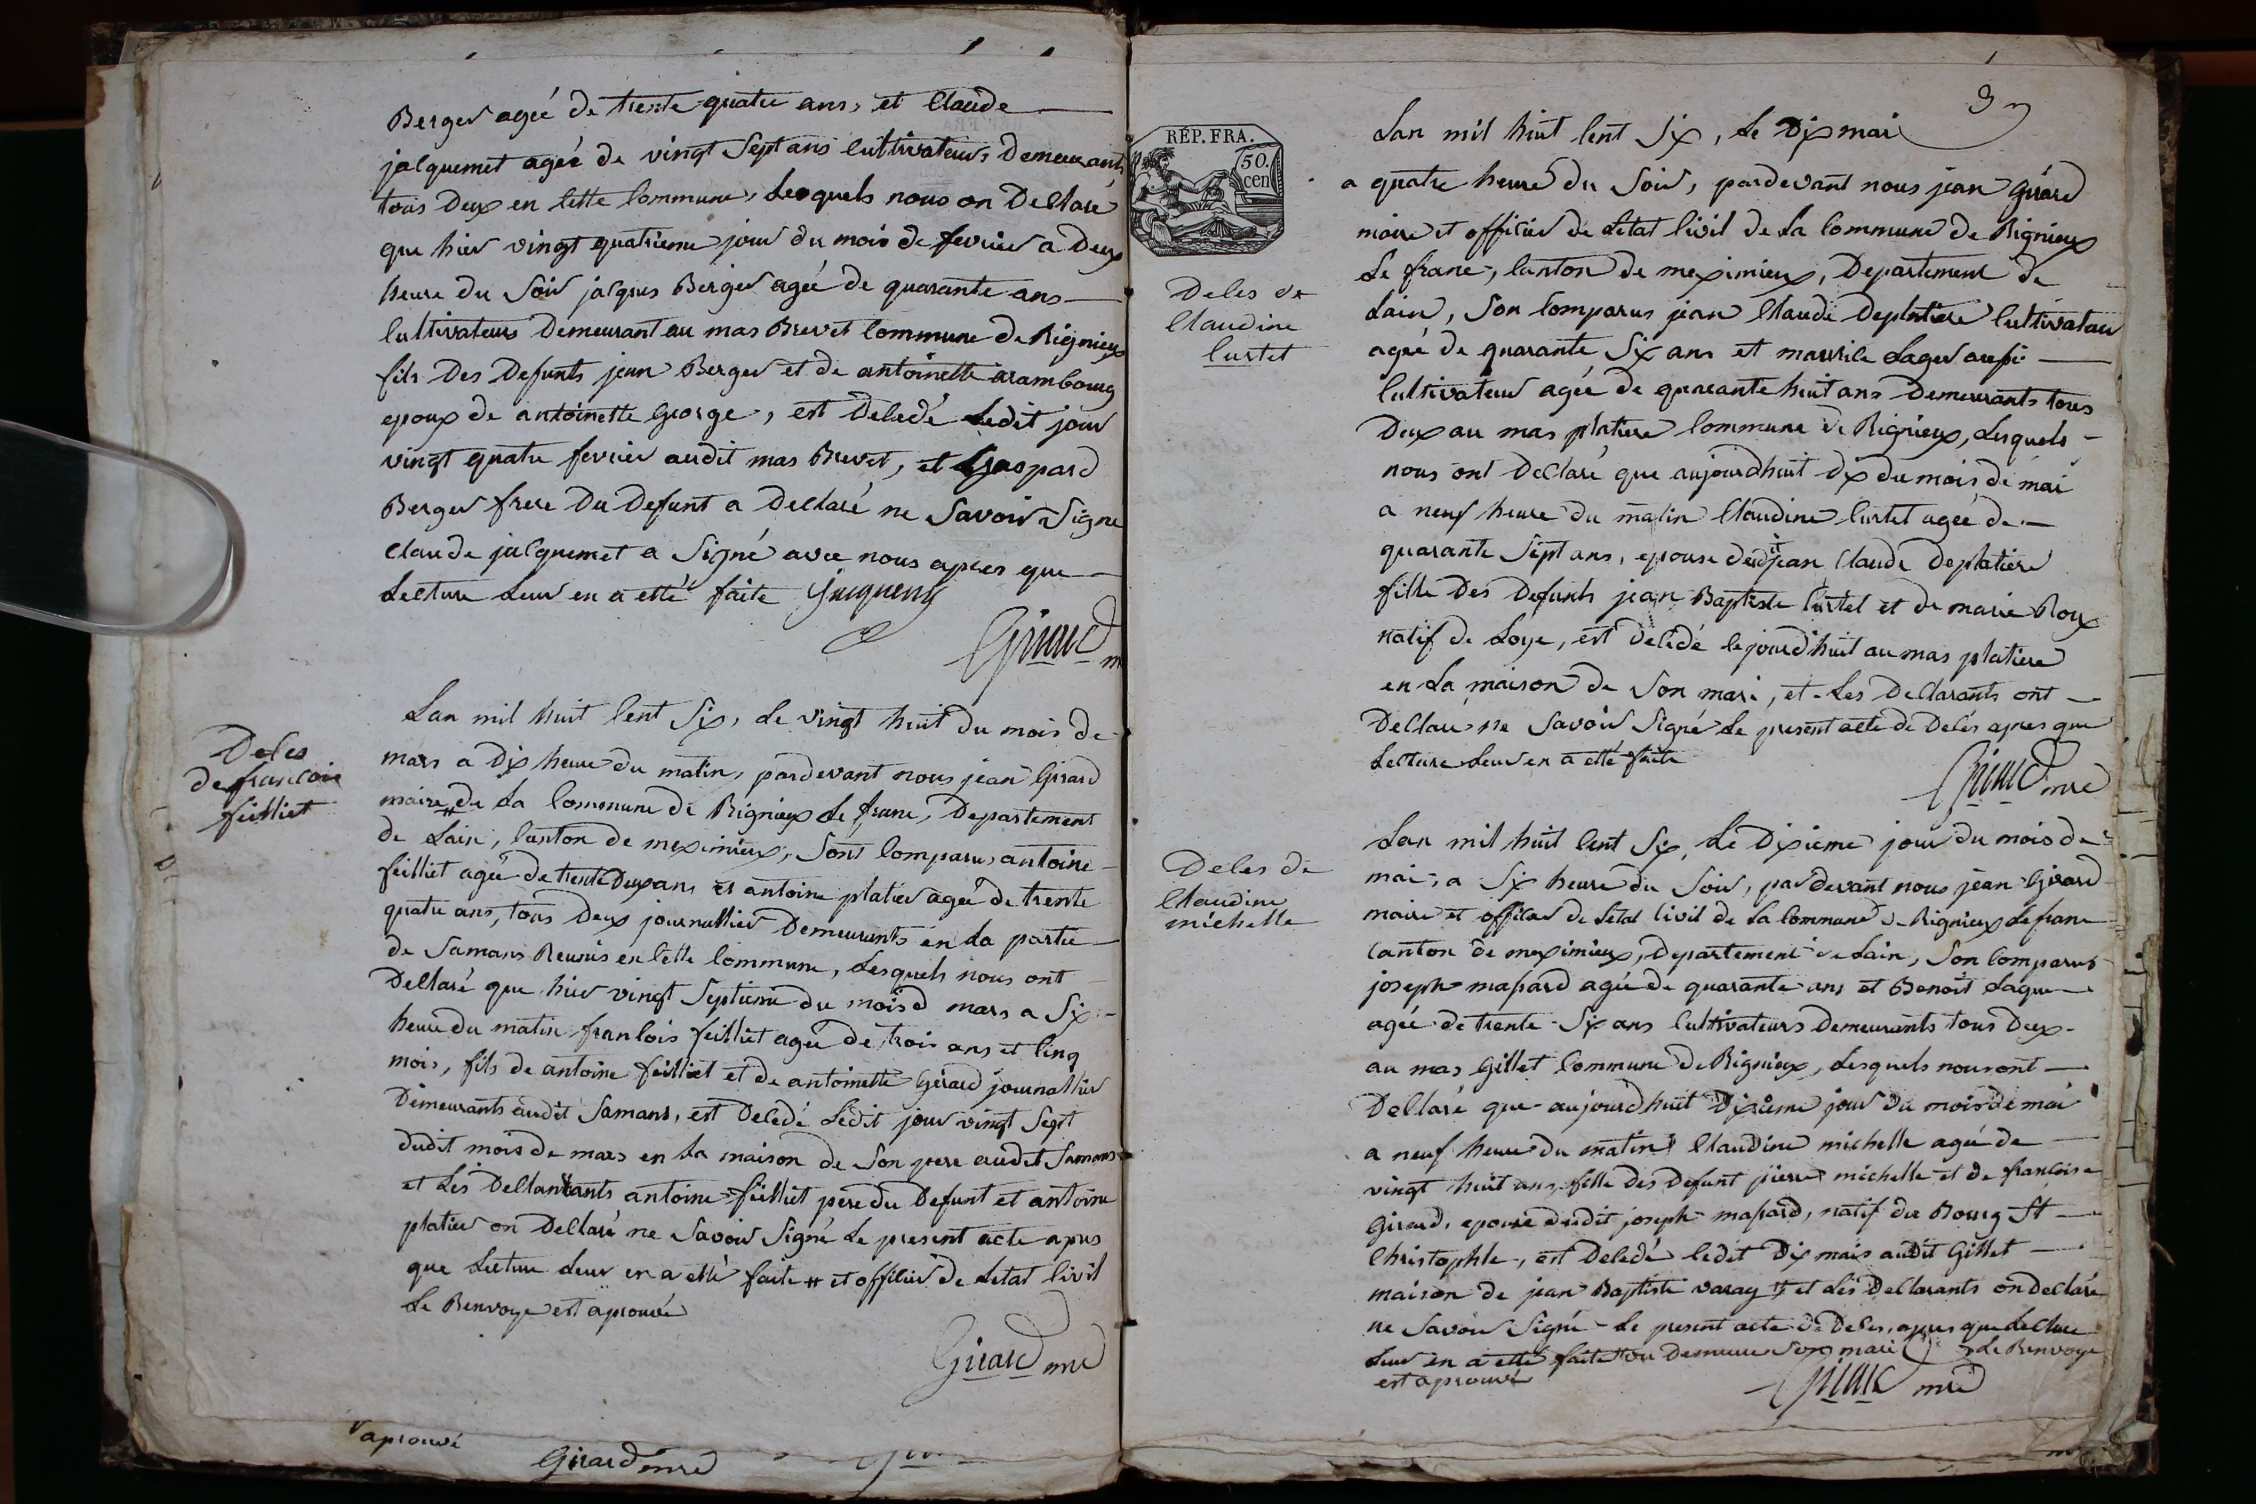 Berger ageé de trente quatre ans, et Claude
jacquemet ageé de vingt Sept ans Cultivateurs Demeurants
tous Deux en Cette Commune, Lesquels nous on Declaré
que hier vingt quatrieme jour du mois de fevrier a Deux
heure du Soir jacques Berger ageé de quarante ans
Cultivateurs Demeurant au mas Brevet Commune de Rignieux
fils Des Defunts jean Berger et de antoinette arambourg
epoux de antoinette George, est Decedé Ledit jour
vingt quatre fevrier audit mas Brevet, et Gaspard
Berger frere Du Defunt a Declaré ne Savoir Signe
Claude jacquemet a Signé avec nous apres que
Lecture Leur en a etté faite
Girard m
Deces
de francois
feilliet
Lan mil huit Cent Six, Le vingt huit du mois de
mars a Dix heure du matin, pardevant nous jean Girard
maire # de La Commune de Rignieux Le franc, Departement
de Lain, Canton de meximieux, Sont Comparus antoine
feilliet ageé de trente Deux ans et antoine platier ageé de trente
quatre ans, tous Deux journallier Demeurants en La partie
de Samans Reunis en Cette Commune, Lesquels nous ont
Declaré que hier vingt Septieme du mois d mars a Six
heure du matin francois feilliet ageé de trois ans et Cinq
mois, fils de antoine feilliet et de antoinette Gérard journallier
Demeurants audit Samans, est Decedé Ledit jour vingt Sept
dudit mois de mars en La maison de Son pere audit Samans
et Les Declarants antoine feilliet pere du Defunt et antoine
platier on Declaré ne Savoir Signé Le present acte apres
que Lecture Leur en a etté faite # et officier de Letat Civil
Le Renvoye est aprouvé
Girard mre
aprouvé
Girard mre
3
RÉP. FRA.
50.
cen
Lan mil huit Cent Six, Le Dix mai
a quatre heure du Soir, pardevant nous jean Girard
maire et officier de Letat Civil de La Commune de Rignieux
Le franc, Canton de meximieux, Departement de
Lain, Son Comparus jean Claude Deplatiere Cultivateur
ageé de quarante Six ans et Lager aussi
Cultivateur ageé de quarante huit ans Demeurants tous
Deux au mas platiere Commune de Rignieux, Lesquels
nous ont Declaré que aujourdhuit Dix du mois de mai
a neuf heure du matin Claudine Curtet ageé de
quarante Sept ans, epouse dudit jean Claude Deplatiere
fille Des Defunts jean Baptiste Curtet et de marie Roux
natif de Loye, est decedé Cejourdhuit au mas platiere
en La maison de Son mari, et Les Declarants ont
Declaré ne Savoir Signé Le present acte de Deces apres que
Lecture Leur en a etté faite
Girard mre
Deces de
Claudine
Curtet
Lan mil huit Cent Six, Le Dixieme jour du mois de
mai, a Six heure du Soir, pardevant nous jean Girard
maire et officier de Letat Civil de La Commune de Rignieux Le franc
Canton de meximieux, Departement de Lain, Son Comparus
joseph massard ageé de quarante ans et Benoit Lague
ageé de trente Six ans Cultivateurs Demeurants tous Deux
au mas Gillet Commune de Rignieux, Lesquels nous ont
Declaré que aujourdhuit Dixieme jour du mois de mai
a neuf heure du matin Claudine michelle ageé de
vingt huit ans, fille des Defunt pierre michelle et de francoise
Girard, epouse dudit joseph massard, natif du Bourg St
Christophle, est Decedé Ledit Dix mais audit Gillet
maison de jean Baptiste varay # et Les Declarants on declaré
ne Savoir Signé Le present acte de Deces, apres que Lecture
Leur en a etté faite # ou Demeure Son mari Le Renvoye
est aprouvé
Girard mre
Deces de
Claudine
michelle